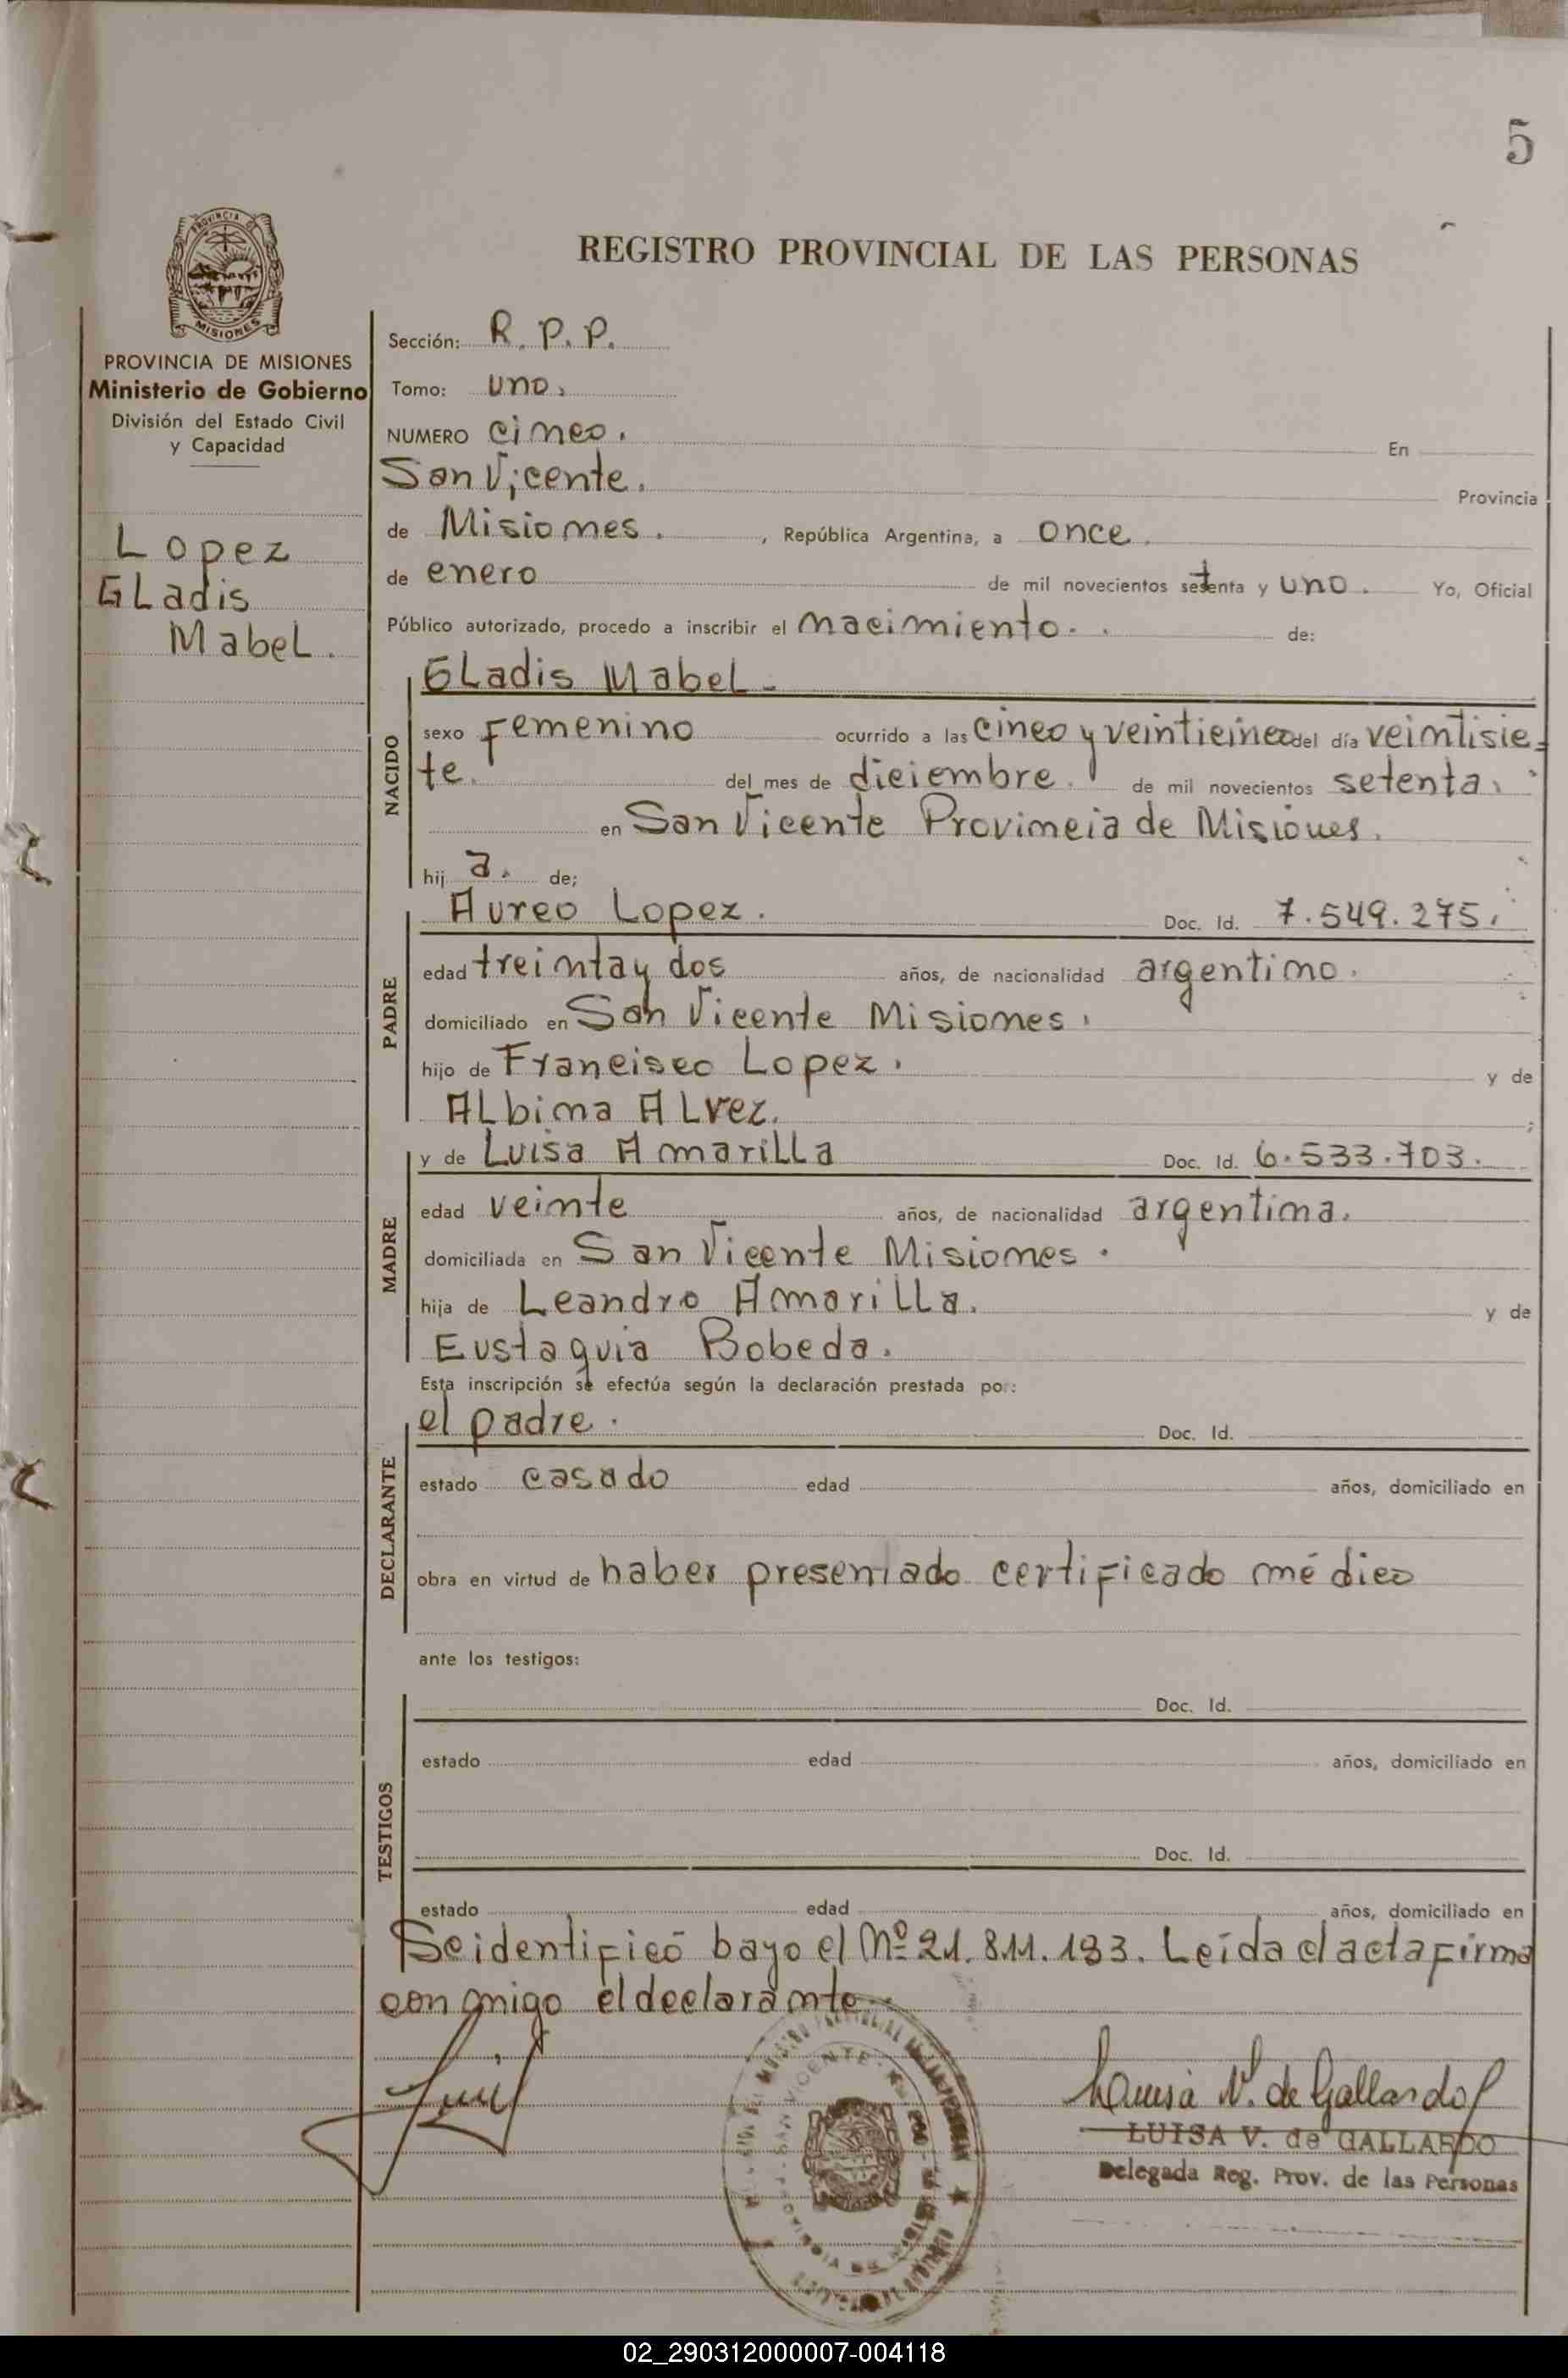 5
REGISTRO PROVINCIAL DE LAS PERSONAS
PROVINCIA DE
MISIONES
PROVINCIA DE MISIONES
Ministerio de Gobierno
División del Estado Civil
y Capacidad
Lopez
Gladis
Mabel.
Sección: R. P. P.
Tomo: uno.
NUMERO cinco. En
San Vicente. Provincia
de Misiones. , República Argentina, a once.
de enero de mil novecientos setenta y uno. Yo, Oficial
Público autorizado, procedo a inscribir el nacimiento. de:
NACIDO
Gladis Mabel.-
sexo Femenino ocurrido a las cinco y veinticinco del día veintisie-
te. del mes de diciembre. de mil novecientos setenta.
en San Vicente Provincia de Misiones.
hij a. de;
PADRE
Aureo Lopez. Doc. Id. 7.549.275.
edad treinta y dos años, de nacionalidad argentino.
domiciliado en San Vicente Misiones.
hijo de Francisco Lopez. y de
Albina Alvez.
MADRE
y de Luisa Amarilla Doc. Id. 6.533.703.
edad veinte años, de nacionalidad argentina.
domiciliada en San Vicente Misiones.
hija de Leandro Amarilla. y de
Eustaquia Bobeda.
Esta inscripción se efectúa según la declaración prestada por:
DECLARANTE
el padre. Doc. Id.
estado casado edad años, domiciliado en
obra en virtud de haber presentado certificado médico
ante los testigos:
TESTIGOS
Doc. Id.
estado edad años, domiciliado en
Doc. Id.
estado edad años, domiciliado en
Se identificó bayo el Nº 21.811.193. Leída el acta firma
con migo el declarante
Louisa V. de Gallardo
LUISA V. de GALLARDO
Delegada Reg. Prov. de las Personas
SAN VICENTE
02_290312000007-004118